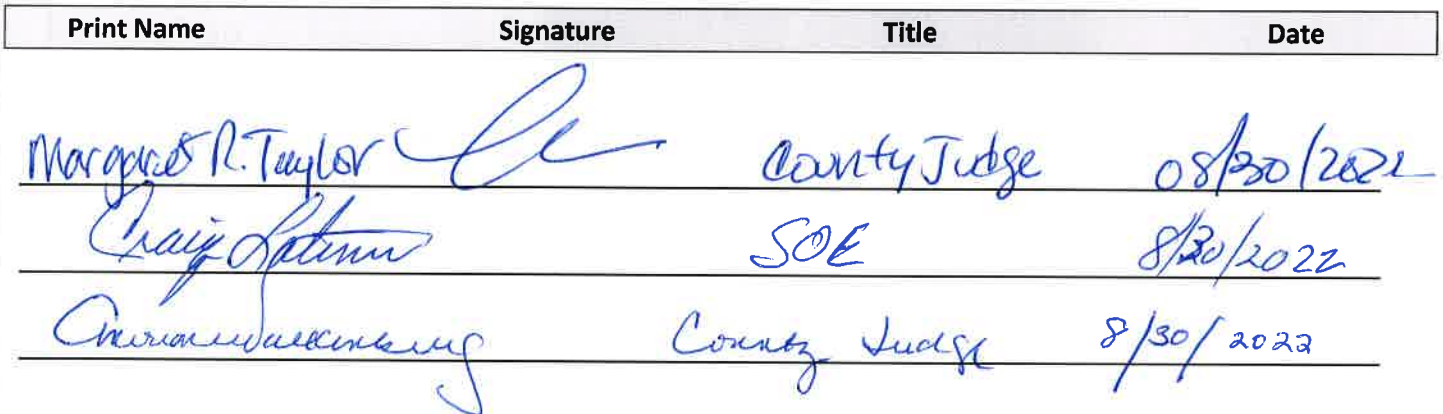 Print Name Signature Title Date
Margaret R. Taylor County Judge 08/30/2022
Craig Latimer SOE 8/30/2022
County Judge 8/30/2022